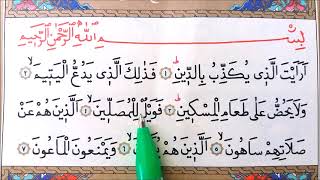 بِسْمِ اللّٰهِ الرَّحْمٰنِ الرَّحِيْمِ
اَرَاَيْتَ الَّذٖى يُكَذِّبُ بِالدّٖينِۜ ﴿١﴾ فَذٰلِكَ الَّذٖى يَدُعُّ الْيَتٖيمَۙ ﴿٢﴾
وَلَا يَحُضُّ عَلٰى طَعَامِ الْمِسْكٖينِۜ ﴿٣﴾ فَوَيْلٌ لِلْمُصَلّٖينَۙ ﴿٤﴾ اَلَّذٖينَ هُمْ عَنْ
صَلَاتِهِمْ سَاهُونَۙ ﴿٥﴾ اَلَّذٖينَ هُمْ يُرَٓاؤُ۫نَۙ ﴿٦﴾ وَيَمْنَعُونَ الْمَاعُونَ ﴿٧﴾